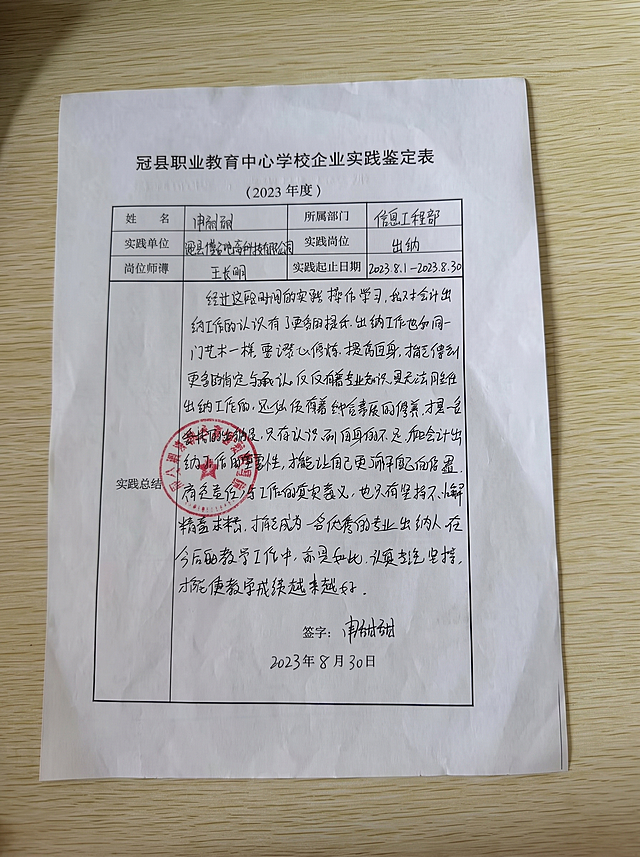 冠县职业教育中心学校企业实践鉴定表
（2023 年度）
姓 名 申甜甜 所属部门 信息工程部
实践单位 冠县 电商科技有限公司 实践岗位 出纳
岗位师傅 王长明 实践起止日期 2023.8.1-2023.8.30
实践总结
经过这段时间的实践操作学习，我对会计出
纳工作的认识有了更多的提升，出纳工作也如同一
门艺术一样，要潜心修炼，提高自身，才能得到
更多的肯定与承认。仅仅有着专业知识是无法胜任
出纳工作的，还必须有着综合素质的修养，才是一名
的出纳员，只有认识到自身的不足和会计出
纳工作的重要性，才能让自己更
责任与工作的真实意义，也只有坚持不懈
精益求精，才能成为一名优秀的专业出纳人。在
今后的教学工作中，亦是如此，认真 坚持，
才能使教学成绩越来越好．
签字：申甜甜
2023年8月30日